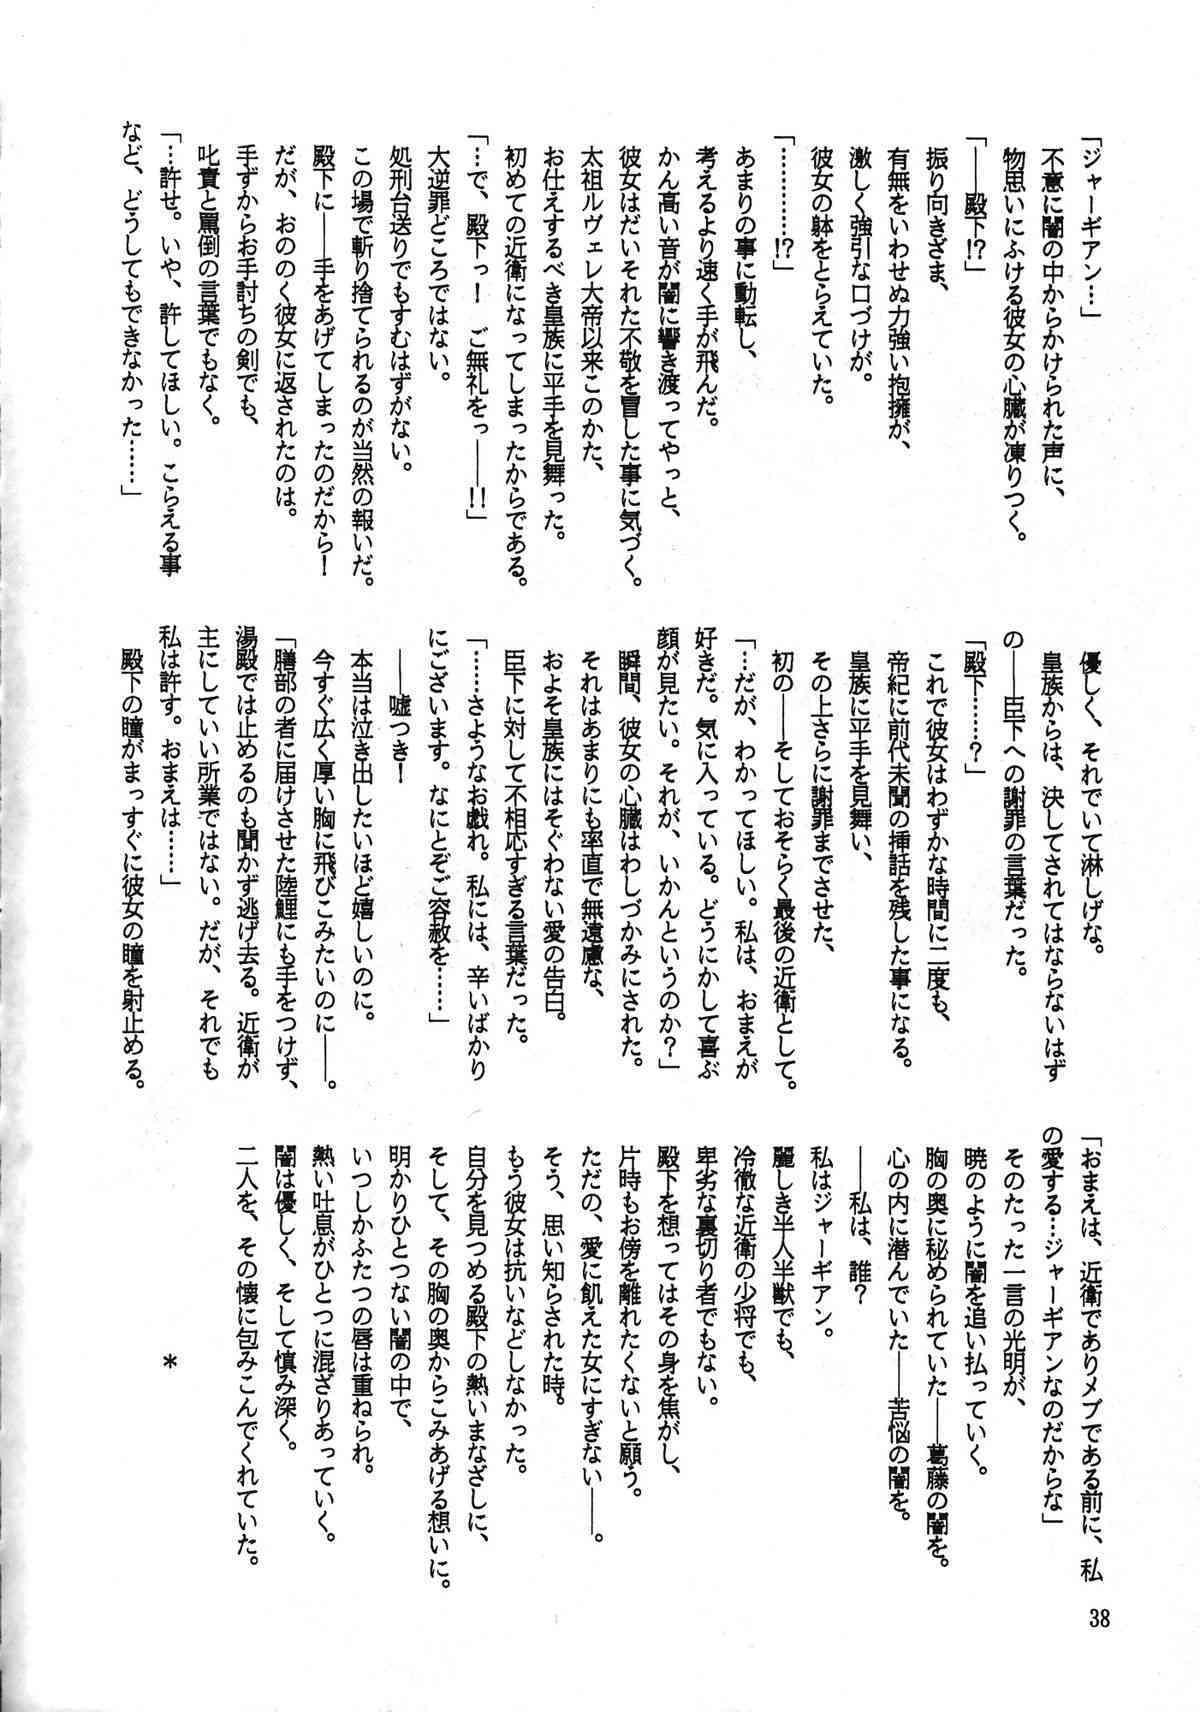 「ジャーギアン…」
不意に闇の中からかけられた声に、
物思いにふける彼女の心臓が凍りつく。
「――殿下!?」
振り向きざま、
有無をいわせぬ力強い抱擁が、
激しく強引な口づけが。
彼女の躰をとらえていた。
「…………!?」
あまりの事に動転し、
考えるより速く手が飛んだ。
かん高い音が闇に響き渡ってやっと、
彼女はだいそれた不敬を冒した事に気づく。
太祖ルヴェレ大帝以来このかた、
お仕えするべき皇族に平手を見舞った。
初めての近衛になってしまったからである。
「…で、殿下っ！　ご無礼をっ――!!」
大逆罪どころではない。
処刑台送りでもすむはずがない。
この場で斬り捨てられるのが当然の報いだ。
殿下に――手をあげてしまったのだから！
だが、おののく彼女に返されたのは。
手ずからお手討ちの剣でも、
叱責と罵倒の言葉でもなく。
「…許せ。いや、許してほしい。こらえる事
など、どうしてもできなかった……」
優しく、それでいて淋しげな。
皇族からは、決してされてはならないはず
の――臣下への謝罪の言葉だった。
「殿下……？」
これで彼女はわずかな時間に二度も、
帝紀に前代未聞の挿話を残した事になる。
皇族に平手を見舞い、
その上さらに謝罪までさせた、
初の――そしておそらく最後の近衛として。
「…だが、わかってほしい。私は、おまえが
好きだ。気に入っている。どうにかして喜ぶ
顔が見たい。それが、いかんというのか？」
瞬間、彼女の心臓はわしづかみにされた。
それはあまりにも率直で無遠慮な、
およそ皇族にはそぐわない愛の告白。
臣下に対して不相応すぎる言葉だった。
「……さようなお戯れ。私には、辛いばかり
にございます。なにとぞご容赦を……」
――嘘つき！
本当は泣き出したいほど嬉しいのに。
今すぐ広く厚い胸に飛びこみたいのに――。
「膳部の者に届けさせた陸鯉にも手をつけず、
湯殿では止めるのも聞かず逃げ去る。近衛が
主にしていい所業ではない。だが、それでも
私は許す。おまえは……」
殿下の瞳がまっすぐに彼女の瞳を射止める。
「おまえは、近衛でありメブである前に、私
の愛する…ジャーギアンなのだからな」
そのたった一言の光明が、
暁のように闇を追い払っていく。
胸の奥に秘められていた――葛藤の闇を。
心の内に潜んでいた――苦悩の闇を。
――私は、誰？
私はジャーギアン。
麗しき半人半獣でも、
冷徹な近衛の少将でも、
卑劣な裏切り者でもない。
殿下を想ってはその身を焦がし、
片時もお傍を離れたくないと願う。
ただの、愛に飢えた女にすぎない――。
そう、思い知らされた時。
もう彼女は抗いなどしなかった。
自分を見つめる殿下の熱いまなざしに、
そして、その胸の奥からこみあげる想いに。
明かりひとつない闇の中で、
いつしかふたつの唇は重ねられ。
熱い吐息がひとつに混ざりあっていく。
闇は優しく、そして慎み深く。
二人を、その懐に包みこんでくれていた。
＊
38